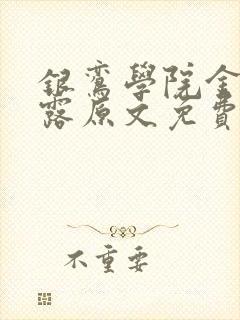 銀鸞學院金
露原文免費
不重要